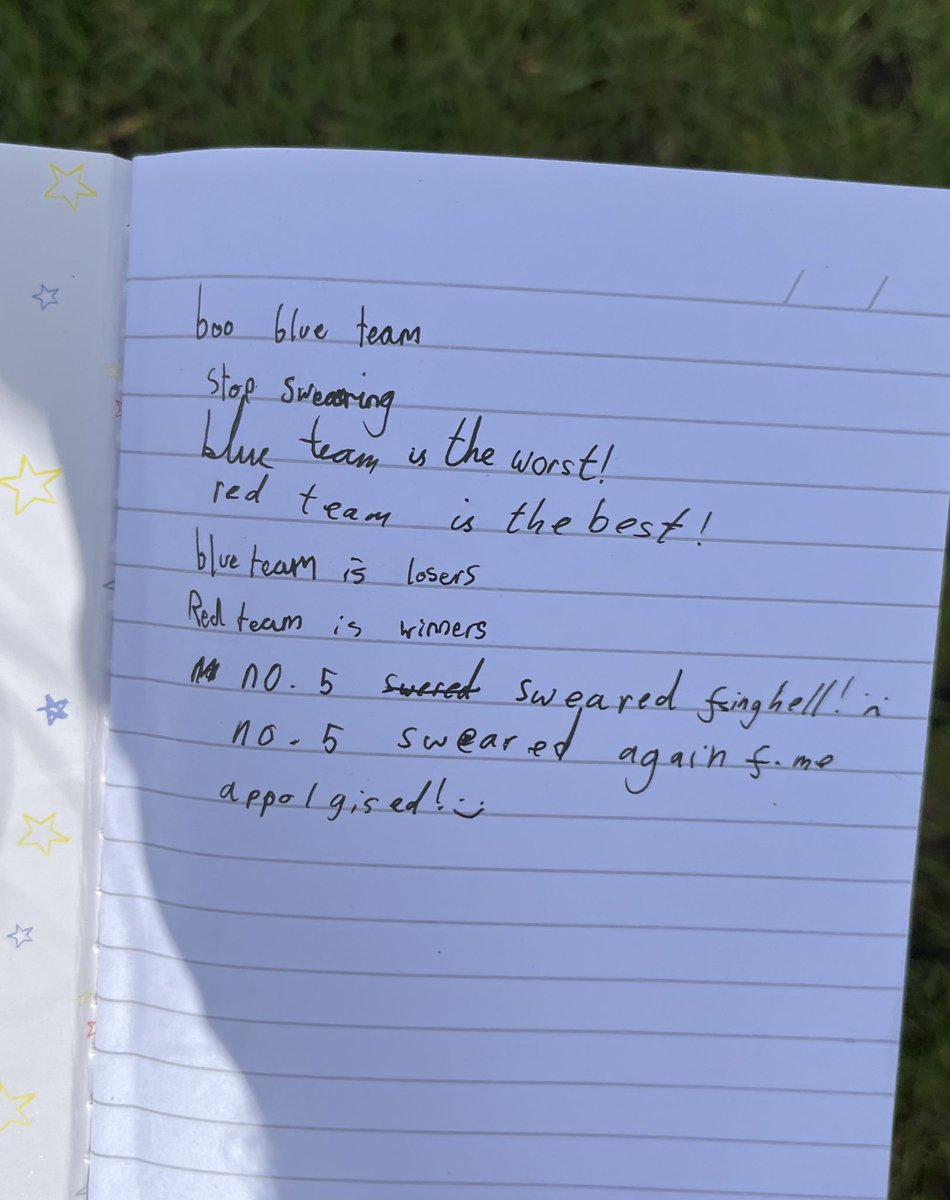 boo blue team
stop swearing
blue team is the worst!
red team is the best!
blue team is losers
Red team is winners
no. 5 swered sweared fsinghell! :(
no. 5 sweared again f. me
appolgised! :)